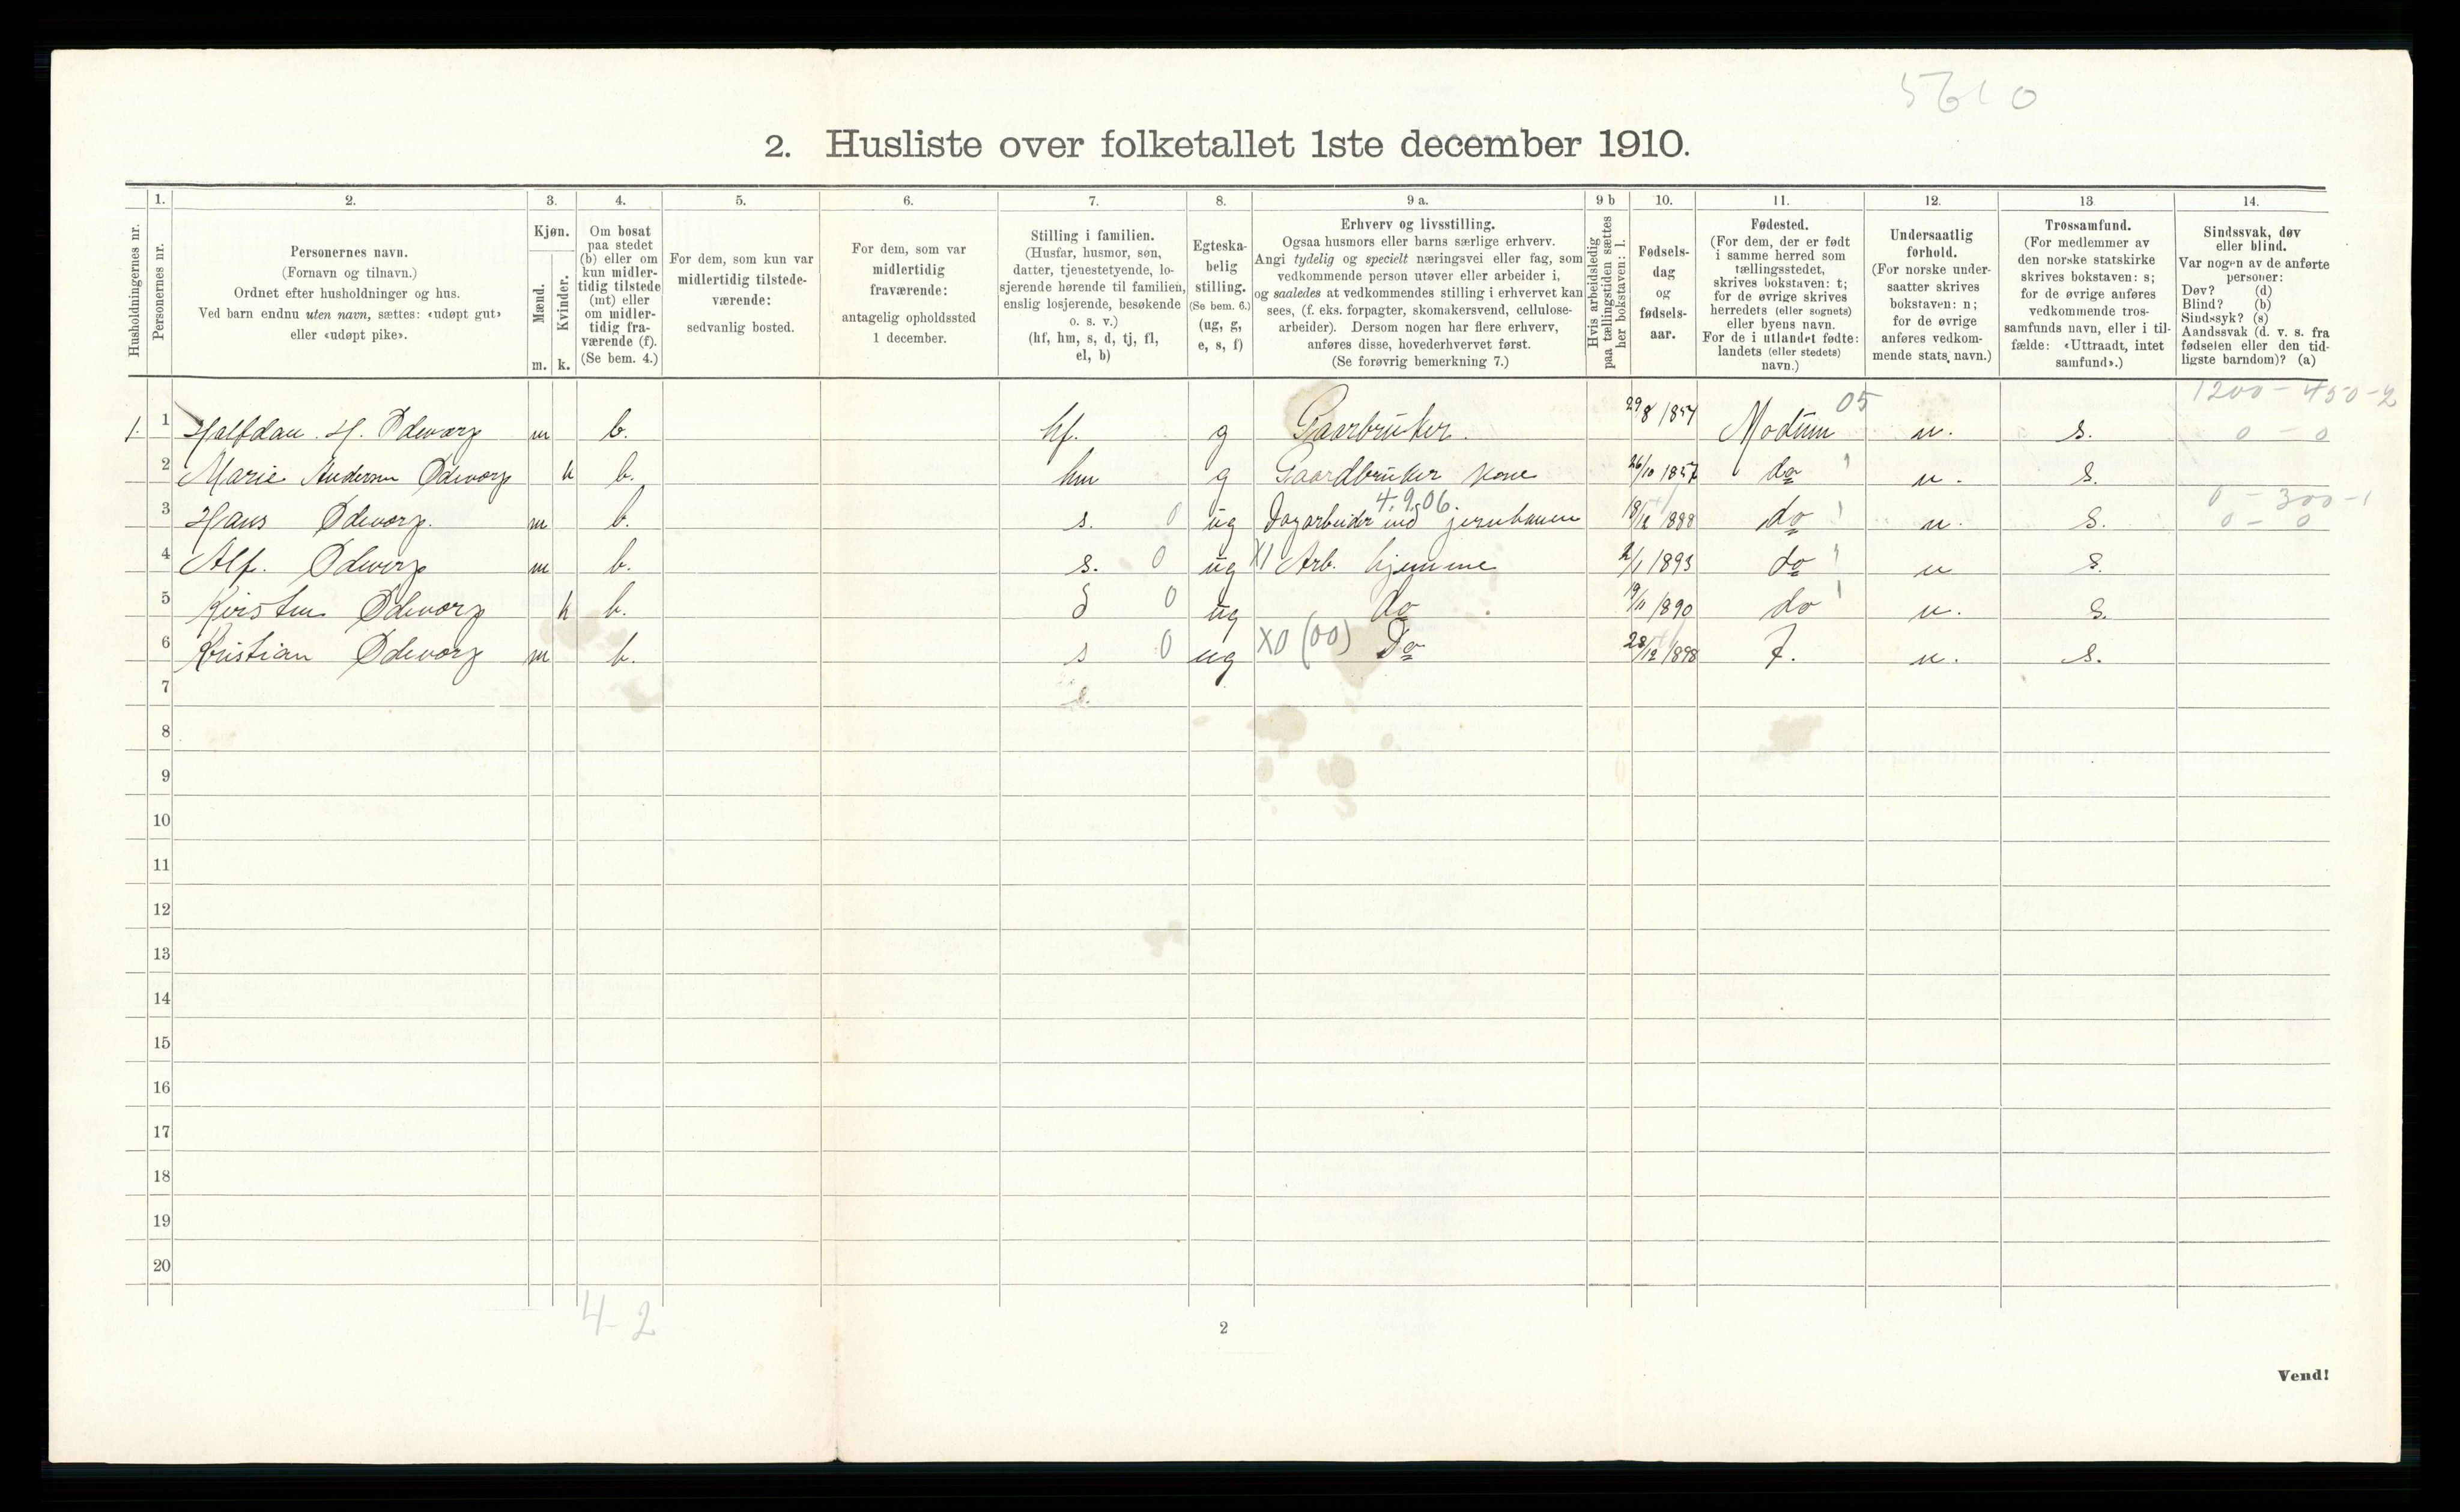 5610
2. Husliste over folketallet 1ste december 1910.
Husholdningernes nr.
1.
Personernes nr.
2.
Personernes navn.
(Fornavn og tilnavn.)
Ordnet efter husholdninger og hus.
Ved barn endnu uten navn, sættes: «udøpt gut»
eller «udøpt pike».
3.
Kjøn.
Mænd.
m.
Kvinder.
k.
4.
Om bosat
paa stedet
(b) eller om
kun midler-
tidig tilstede
(mt) eller
om midler-
tidig fra-
værende (f).
(Se bem. 4.)
5.
For dem, som kun var
midlertidig tilstede-
værende:
sedvanlig bosted.
6.
For dem, som var
midlertidig
fraværende:
antagelig opholdssted
1 december.
7.
Stilling i familien.
(Husfar, husmor, søn,
datter, tjenestetyende, lo-
sjerende hørende til familien,
enslig losjerende, besøkende
o. s. v.)
(hf, hm, s, d, tj, fl,
el, b)
8.
Egteska-
belig
stilling.
(Se bem. 6.)
(ug, g,
e, s, f)
9 a.
Erhverv og livsstilling.
Ogsaa husmors eller barns særlige erhverv.
Angi tydelig og specielt næringsvei eller fag, som
vedkommende person utøver eller arbeider i,
og saaledes at vedkommendes stilling i erhvervet kan
sees, (f. eks. forpagter, skomakersvend, cellulose-
arbeider). Dersom nogen har flere erhverv,
anføres disse, hovederhvervet først.
(Se forøvrig bemerkning 7.)
9 b
Hvis arbeidsledig
paa tællingstiden sættes
her bokstaven: l.
10.
Fødsels-
dag
og
fødsels-
aar.
11.
Fødested.
(For dem, der er født
i samme herred som
tællingsstedet,
skrives bokstaven: t;
for de øvrige skrives
herredets (eller sognets)
eller byens navn.
For de i utlandet fødte:
landets (eller stedets)
navn.)
12.
Undersaatlig
forhold.
(For norske under-
saatter skrives
bokstaven: n;
for de øvrige
anføres vedkom-
mende stats navn.)
13.
Trossamfund.
(For medlemmer av
den norske statskirke
skrives bokstaven: s;
for de øvrige anføres
vedkommende tros-
samfunds navn, eller i til-
fælde: «Uttraadt, intet
samfund».)
14.
Sindssvak, døv
eller blind.
Var nogen av de anførte
personer:
Døv? (d)
Blind? (b)
Sindssyk? (s)
Aandssvak (d. v. s. fra
fødselen eller den tid-
ligste barndom)? (a)
1200 - 450 - 2
1. 1 Halfdan. H. Ødevorp m b. hf. g Gaarbruker. 29/8 1857 Modum 05 n. s. 0 - 0
2 Marie Andersen Ødevorp k b. hm g Gaardbruker kone 26/10 1857 do n. s.
4.9.06. 0 - 300 - 1
3 Hans Ødevorp. m b. s. 0 ug Dagarbeider ind jernbanen 18/12 1888 do n. s. 0 - 0
4 Alf. Ødevorp m b. s. 0 ug X1 Arb. hjemme 2/1 1893 do n s.
5 Kirsten Ødevorp k b. d 0 ug do 19/11 1890 do n. s.
6 Kristian Ødevorp m b. s 0 ug X0 (00) Do 28/12 1898 t. n. s.
7
8
9
10
11
12
13
14
15
16
17
18
19
20
4-2
2
Vend!